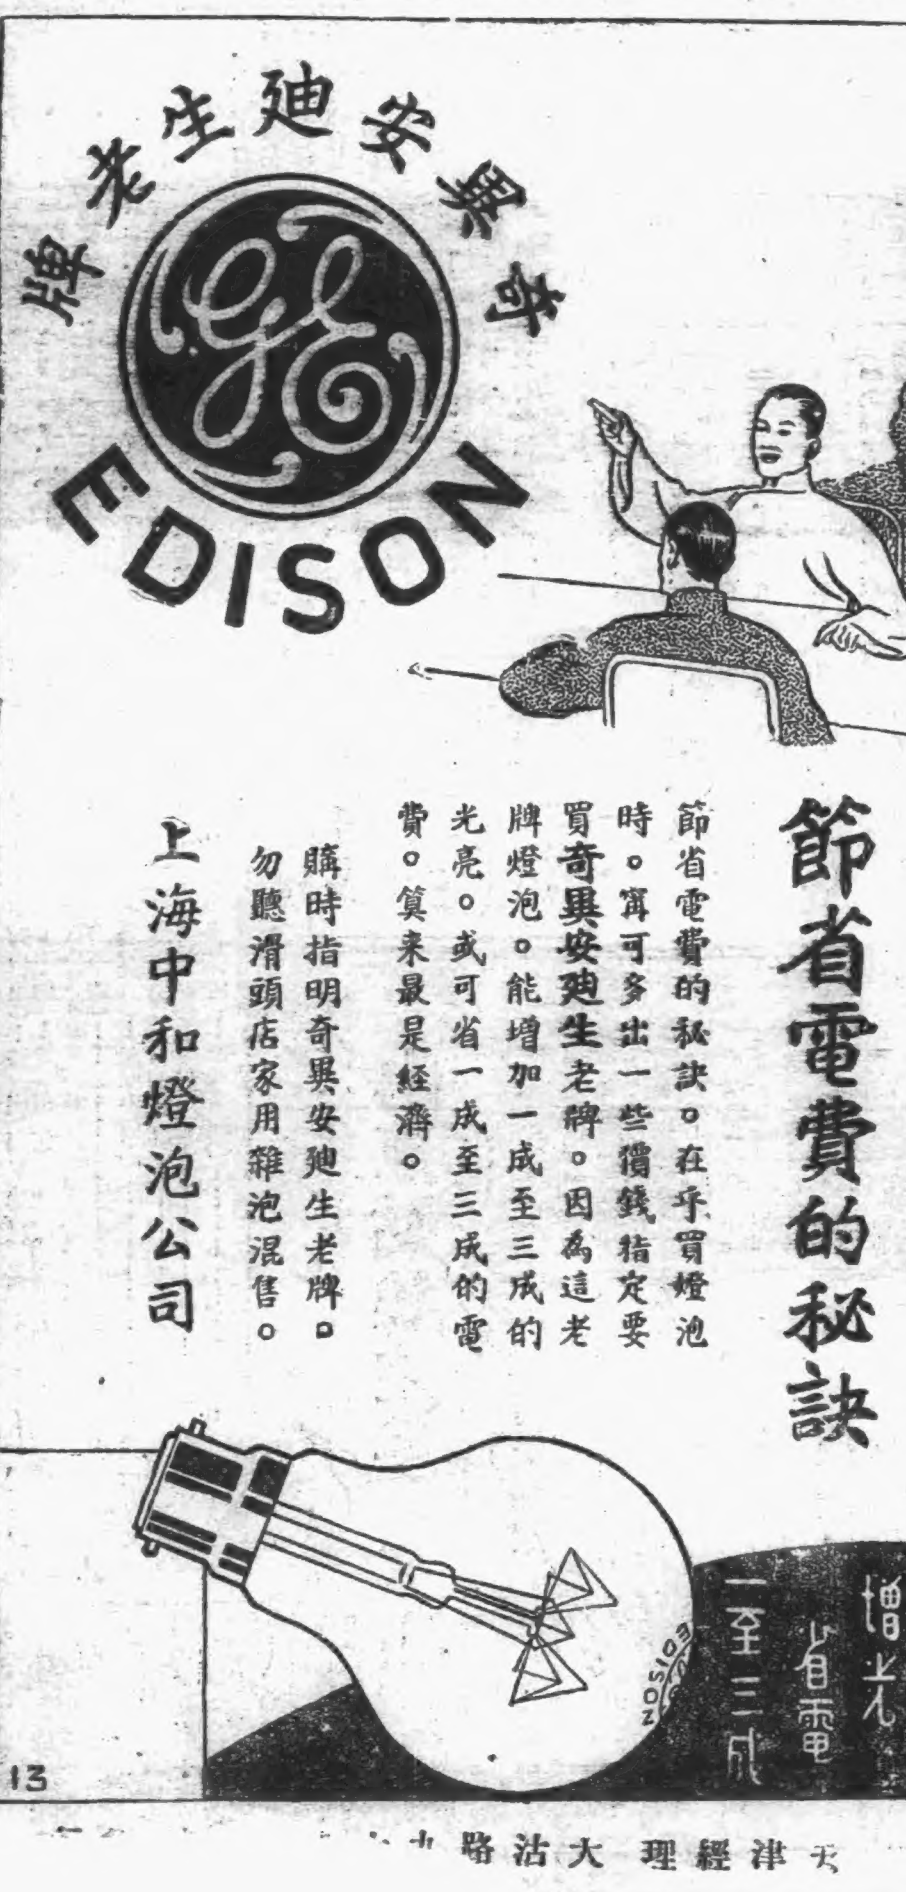 奇異安廸生老牌
GE
EDISON
節省電費的秘訣
節省電費的秘訣。在乎買燈泡
時。寗可多出一些價錢指定要
買奇異安廸生老牌。因為這老
牌燈泡。能增加一成至三成的
光亮。或可省一成至三成的電
費。算来最是經濟。
購時指明奇異安廸生老牌。
勿聽滑頭店家用雜泡混售。
上海中和燈泡公司
增光
省電
一至三成
EDISON
13
天津經理 大沽路